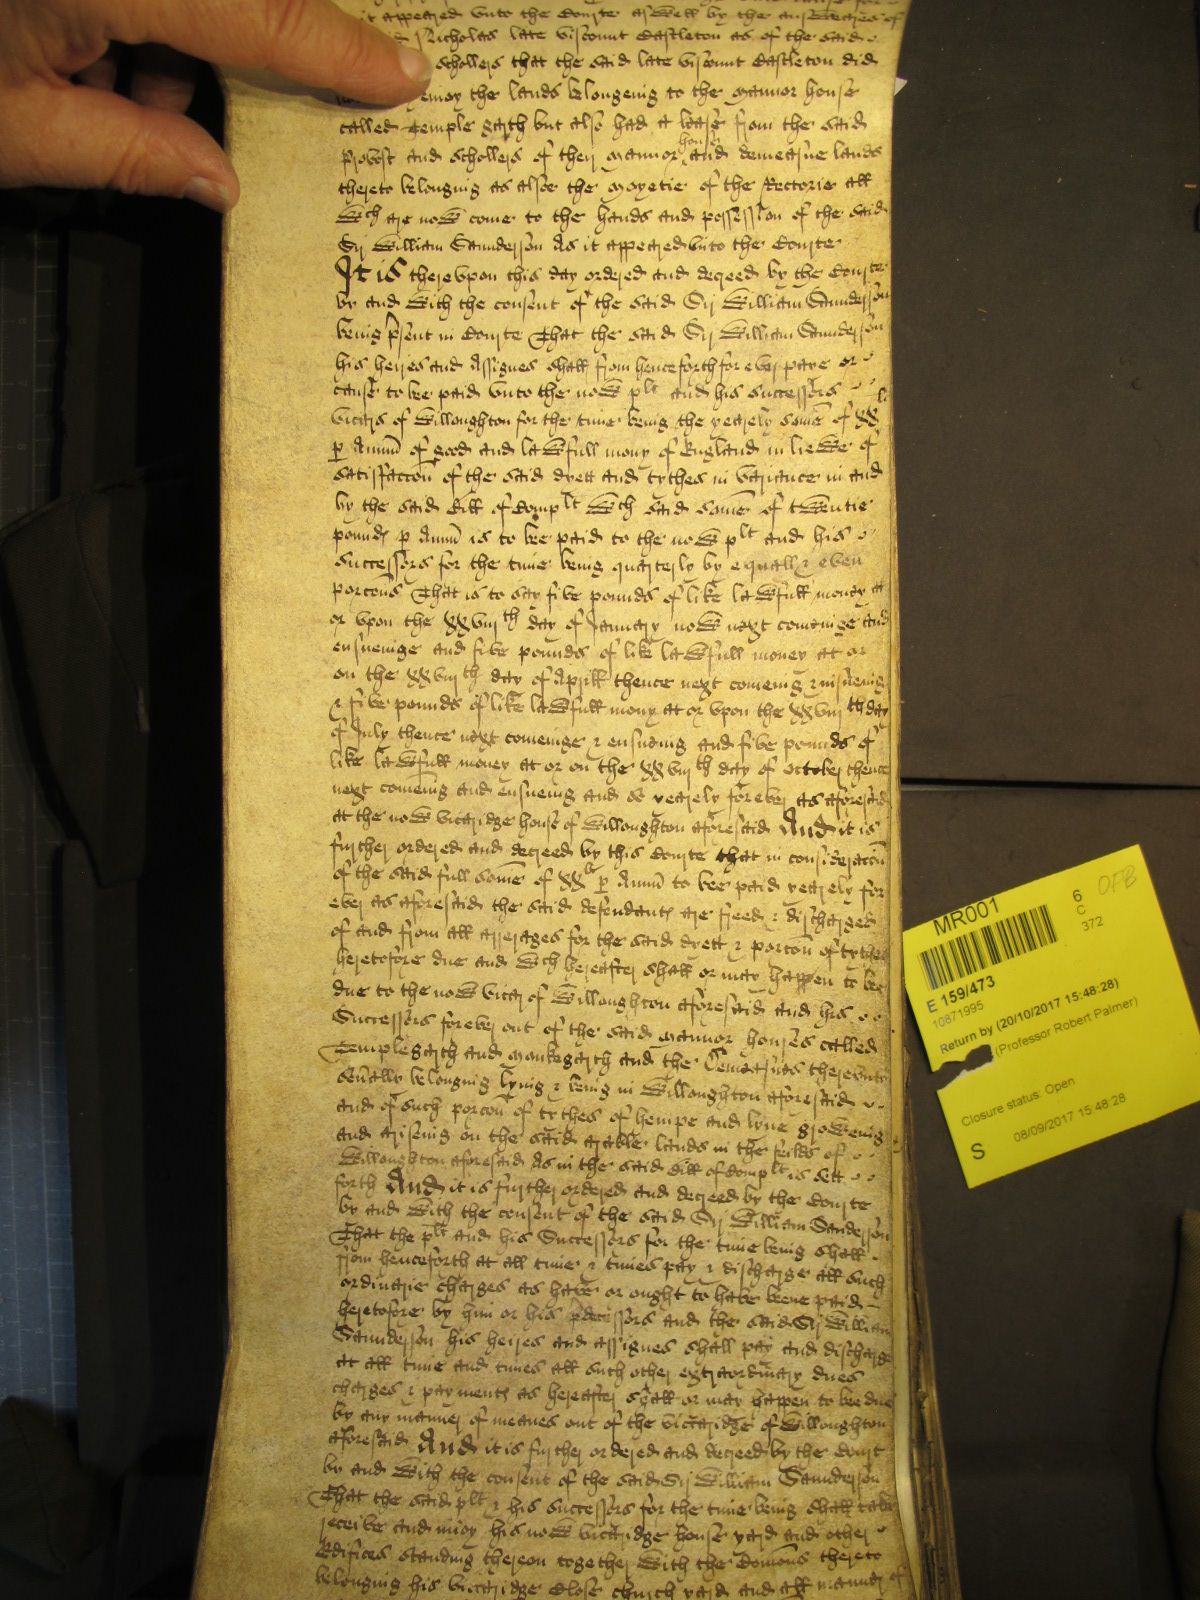 it appeared unto the Courte aswell by the answeares of
Nicholas late viscount Castleton as of the said
schollers that the said late viscount Castleton did
enioy the lands belongeing to the mannor house
called Temple garth but also had a lease from the said
provost and schollers of their mannor house and demeasne lands
thereto belonging as alsoe the moyetie of the Rectorie all
wch are now come to the hands and possession of the said
Sr William Saunderson As it appeared unto the Courte
It is thereupon this day ordered and decreed by the Courte
by and with the consent of the said Sr William Saunderson
being p'sent in Courte That the said Sr William Saunderson
his heires and Assignes shall from henceforth for ever paye or
cause to bee paid unto the now plt and his successors
vicars of Willoughton for the time being the yearely some of XX li
p Annu of good and lawfull mony of England in liewe of
satisfaccon of the said dyett and tythes in variance in and
by the said Bill of Complt wch said some of twentie
pounds p Annu is to bee paid to the now plt and his
successors for the time being quarterly by equall & even
porcons That is to say five pounds of like lawfull money at
or upon the XXviijth day of January now next comeinge and
ensueinge and five pounds of like lawfull money at or
on the XXviijth day of Aprill thence next comeing & insueing
& five pounds of like lawfull mony at or upon the XXviijth day
of July thence next comeinge & ensuing and five pounds of
like lawfull money at or on the XXviijth day of October thence
next comeing and ensueing and so yearely forever as aforesaid
at the now vicaridge house of Willoughton aforesaid And it is
further ordered and decreed by this Courte that in consideracon
of the said full some of XX li p Annu to bee paid yearely for
ever as aforesaid the said defendants are freed & discharged
of and from all arrerages for the said dyett & porcon of tythes
heretofore due and wch hereafter shall or may happen to bee
due to the now vicar of Willoughton aforesaid and his
Successors forever out of the said mannor houses called
Templegarth and monkegarth and the Demeasnes thereunto
sevally belonging lying & being in Willoughton aforesaid
and of such porcon of tythes of hempe and lyne groweing
and ariseing on the said arable lands in the feilds of
Willoughton aforesaid As in the said Bill of Complt is sett
forth And it is further ordered and decreed by the Courte
by and with the consent of the said Sr William Saunderson
That the plt and his Successors for the time being shall
from henceforth at all time & times pay & discharge all such
ordinarie charges as have or ought to have beene paid
heretofore by him or his p'decessors and the said Sr William
Saunderson his heires and assignes shall pay and discharge
at all time and times all such other extraordinary dues
charges & payments as hereafter shall or may happen to bee due
by any manner of meanes out of the viccaridge of Willoughton
aforesaid And it is further ordered and decreed by the Court
by and with the consent of the said Sr William Saunderson
That the said plt & his successors for the time being shall take
receive and inioy his now vicaridge house yard and other
Edifices standing thereon together with the Comons thereto
belonging his viccaridge Close church yard and all manner of
MR001
6
C
372
OFB
E 159/473
10871995
Return by (20/10/2017 15:48:28)
(Professor Robert Palmer)
Closure status: Open
S
08/09/2017 15:48:28